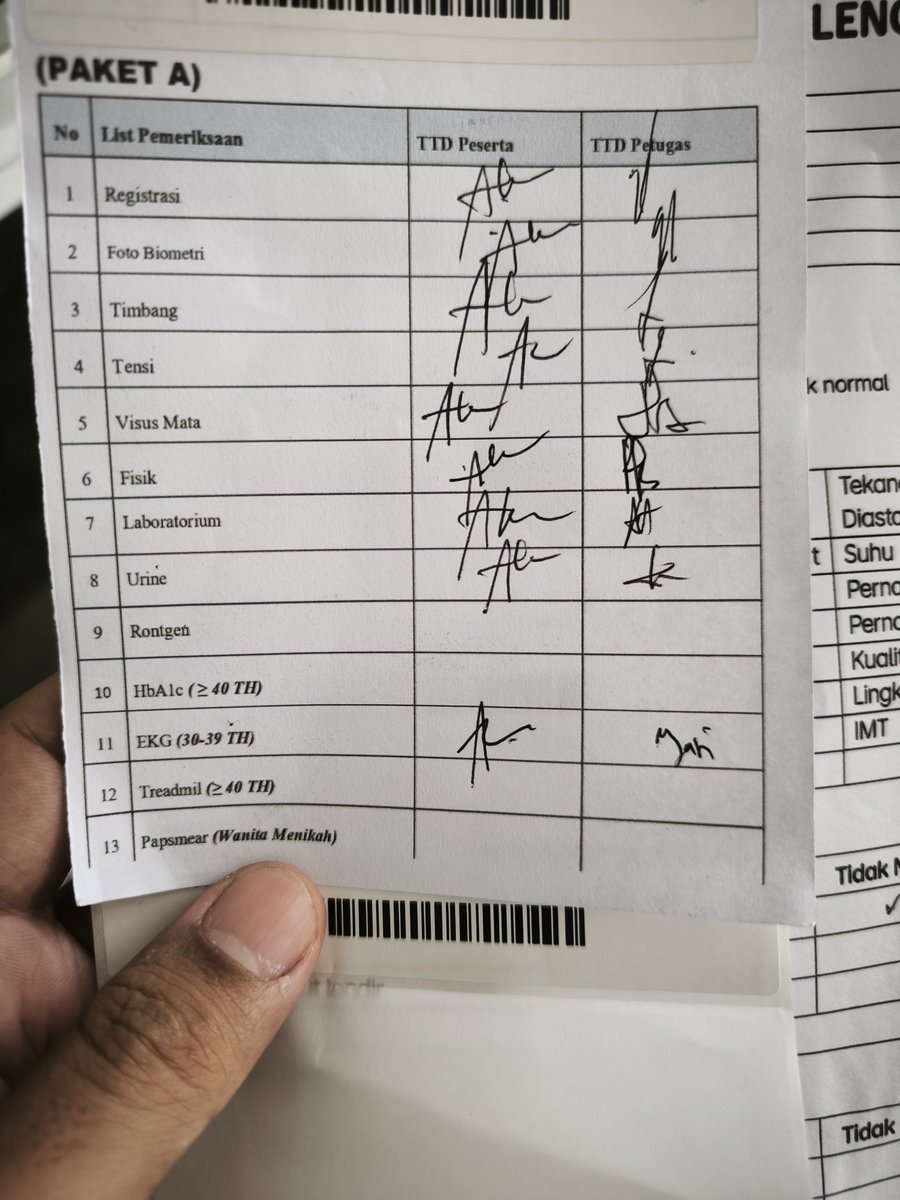 LENG
(PAKET A)
No List Pemeriksaan TTD Peserta TTD Petugas
1 Registrasi
2 Foto Biometri
3 Timbang
4 Tensi
5 Visus Mata
6 Fisik
7 Laboratorium
8 Urine
9 Rontgen
10 HbA1c (≥ 40 TH)
11 EKG (30-39 TH)
12 Treadmil (≥ 40 TH)
13 Papsmear (Wanita Menikah)
k normal
Tekan
Diasto
t Suhu
Perna
Perna
Kualit
Lingk
IMT
Tidak N
Tidak